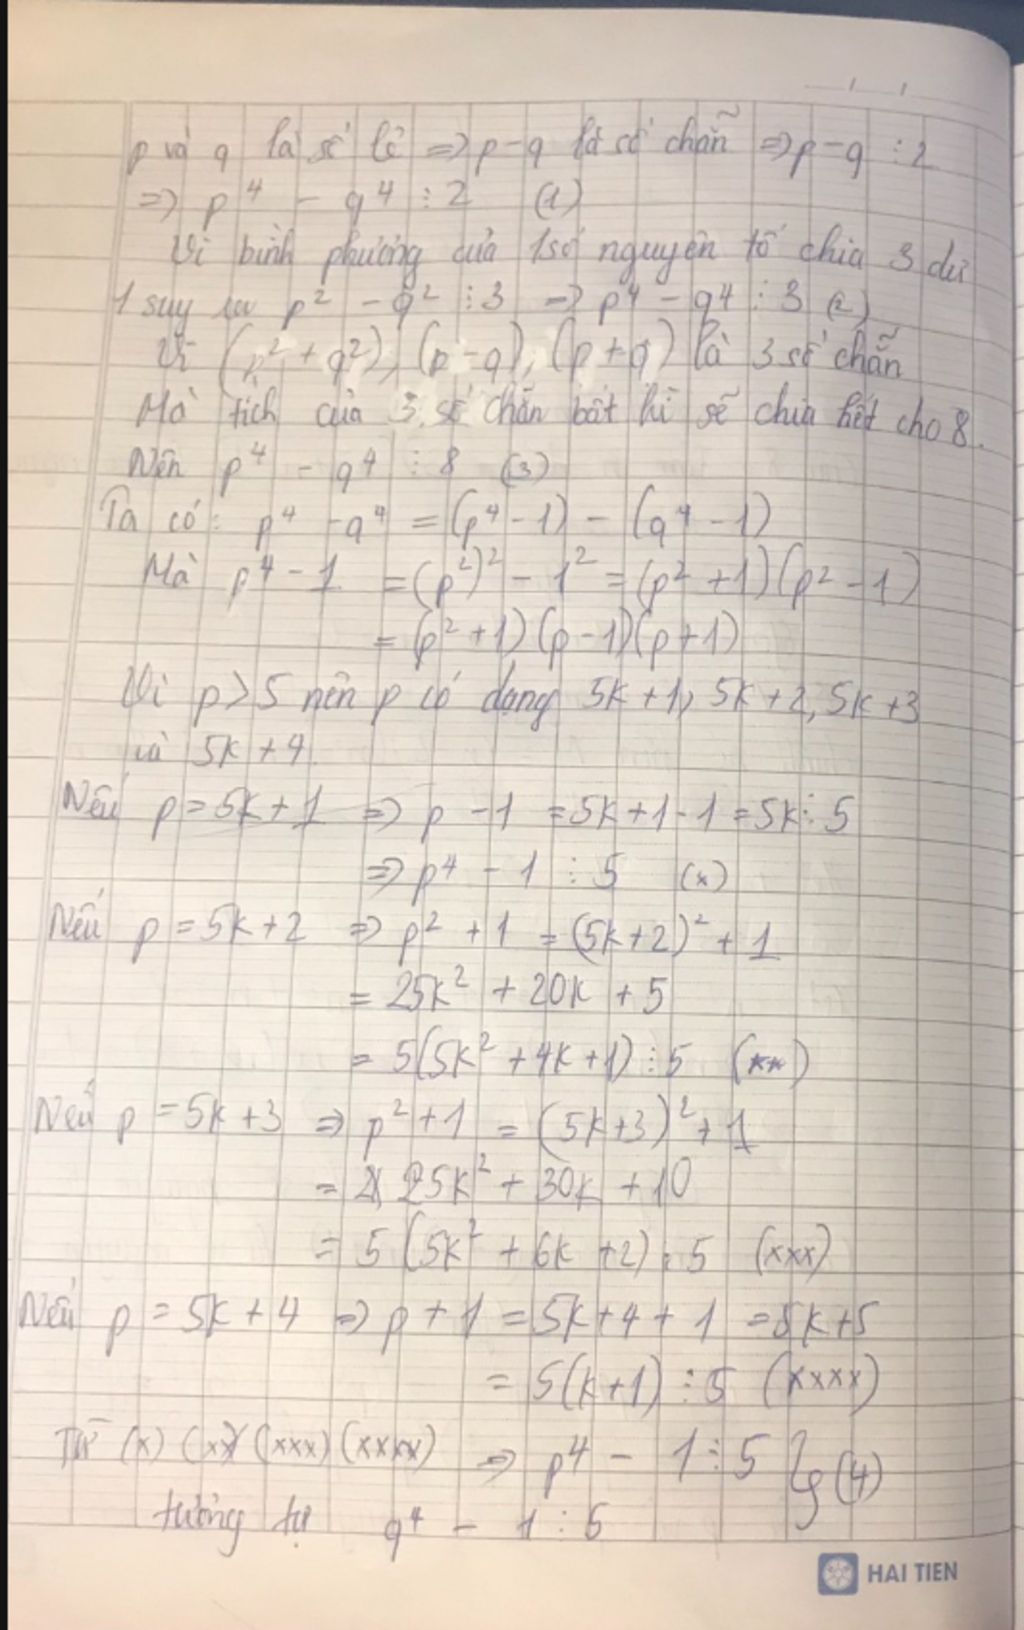 p và q là số lẻ => p - q là số chẵn => p - q ⋮ 2
=> p⁴ - q⁴ ⋮ 2 (1)
Vì bình phương của 1 số nguyên tố chia 3 dư
1 suy ra p² - q² ⋮ 3 => p⁴ - q⁴ ⋮ 3 (2)
Vì (p² + q²), (p - q), (p + q) là 3 số chẵn
Mà tích của 3 số chẵn bất kì sẽ chia hết cho 8.
Nên p⁴ - q⁴ ⋮ 8 (3)
Ta có: p⁴ - q⁴ = (p⁴ - 1) - (q⁴ - 1)
Mà p⁴ - 1 = (p²)² - 1² = (p² + 1)(p² - 1)
= (p² + 1)(p - 1)(p + 1)
Vì p > 5 nên p có dạng 5k + 1, 5k + 2, 5k + 3
và 5k + 4
Nếu p = 5k + 1 => p - 1 = 5k + 1 - 1 = 5k ⋮ 5
=> p⁴ - 1 ⋮ 5 (x)
Nếu p = 5k + 2 => p² + 1 = (5k + 2)² + 1
= 25k² + 20k + 5
= 5(5k² + 4k + 1) ⋮ 5 (xx)
Nếu p = 5k + 3 => p² + 1 = (5k + 3)² + 1
= 25k² + 30k + 10
= 5(5k² + 6k + 2) ⋮ 5 (xxx)
Nếu p = 5k + 4 => p + 1 = 5k + 4 + 1 = 5k + 5
= 5(k + 1) ⋮ 5 (xxxx)
Từ (x) (xx) (xxx) (xxxx) => p⁴ - 1 ⋮ 5 } (4)
tương tự q⁴ - 1 ⋮ 5
HAI TIEN